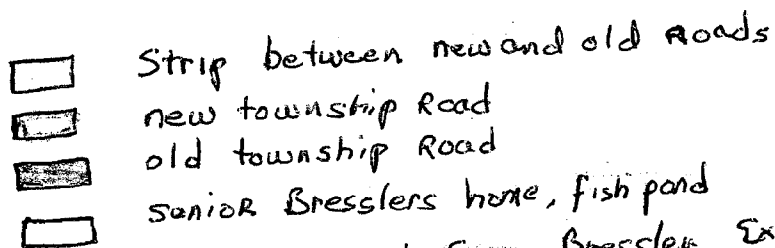 Strip between new and old Roads
new township Road
old township Road
Senior Bresslers home, fish pond
from Bressler Ex